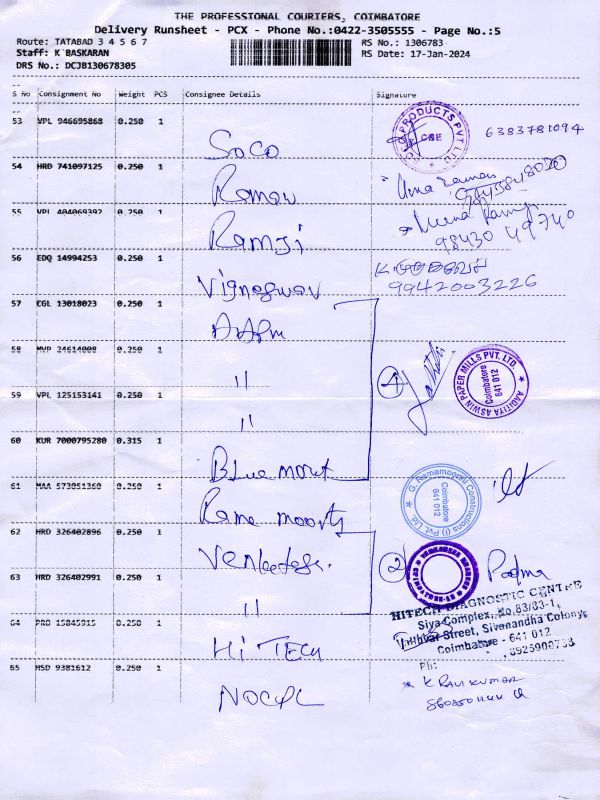 THE PROFESSIONAL COURIERS, COIMBATORE
Delivery Runsheet - PCX - Phone No.:0422-3505555 - Page No.:5
Route: TATABAD 3 4 5 6 7
RS No.: 1306783
Staff: K BASKARAN
RS Date: 17-Jan-2024
DRS No.: DCJB130678305
S No Consignment No Weight PCS Consignee Details Signature
53 VPL 946695868 0.250 1 Soco CBE 6383781094
PRODUCTS PVT. LTD.
54 HRD 741097125 0.250 1 Raman
55 VPL 404069392 0.250 1 Ramji
98430 49740
56 EDQ 14994253 0.250 1 Vigneswar
9942003226
57 CGL 13018023 0.250 1 AAPM
58 MVP 24614008 0.250 1 "
4
AADITYA ASWIN PAPER MILLS PVT. LTD.
Coimbatore
641 012
59 VPL 125153141 0.250 1 "
60 KUR 7000795280 0.315 1 Blue mount
61 MAA 573051360 0.250 1 Rama moorty
G. Ramamoorthi Constructions (I) Pvt. Ltd.
Coimbatore
641 012
62 HRD 326402896 0.250 1 Venkatesa.
2 Padma
63 HRD 326402991 0.250 1 "
HITECH DIAGNOSTIC CENTRE
Siva Complex, No.83/83-1,
Street, Sivanandha Colony,
Coimbatore - 641 012
Ph: 8925900733
64 PRO 15845915 0.250 1 Hi Tech
65 HSD 9381612 0.250 1 NOCPL
K RAVI KUMAR